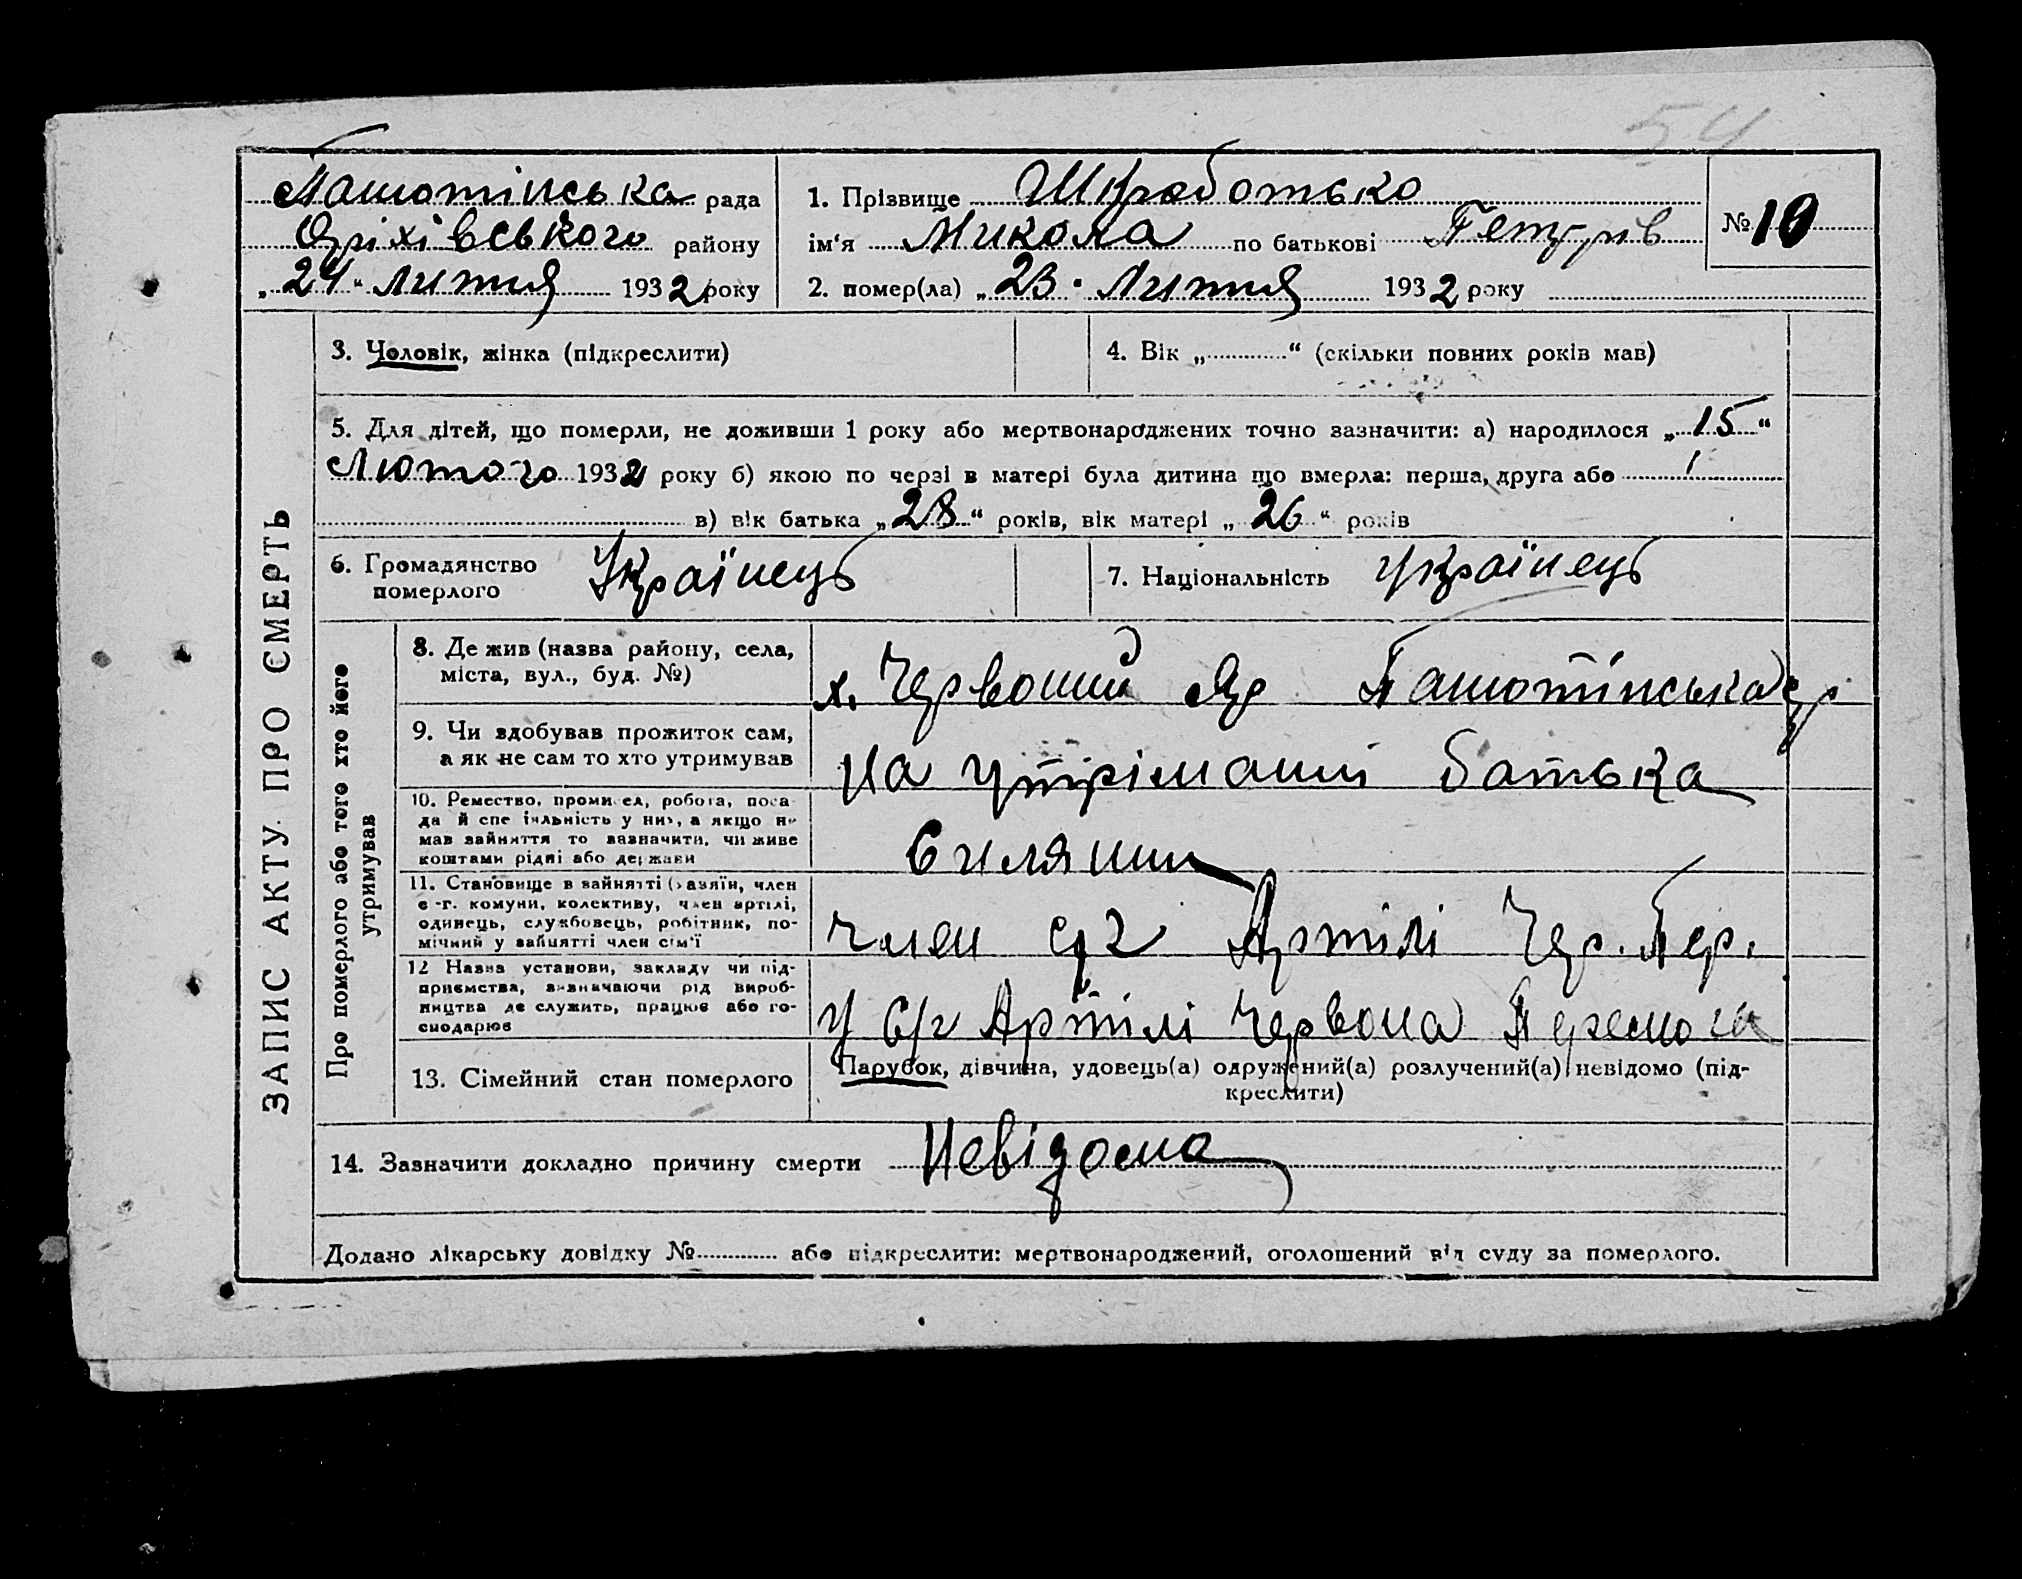 54
Пашотінська рада
Оріхівського району
„24“ Липня 1932 року
1. Прізвище Шкработько
ім‘я Микола по батькові Петрів
2. помер(ла) „23. Липня 1932 року
№ 10
ЗАПИС АКТУ ПРО СМЕРТЬ
3. Чоловік, жінка (підкреслити)
4. Вік „ “ (скільки повних років мав)
5. Для дітей, що померли, не доживши 1 року або мертвонароджених точно зазначити: а) народилося „15“
Лютого 1932 року б) якою по черзі в матері була дитина що вмерла: перша, друга або
в) вік батька „28“ років, вік матері „26“ років
6. Громадянство
померлого
Українець
7. Національність Українець
Про померлого або того хто його
утримував
8. Де жив (назва району, села,
міста, вул., буд. №)
х. Червоний Яр Пашотінська с/р
9. Чи здобував прожиток сам,
а як не сам то хто утримував
на утріманні батька
10. Ремество, промисел, робота, поса-
да й спеціяльність у них, а якщо не
мав зайняття то зазначити, чи живе
коштами рідні або держави
Силянин
11. Становище в зайнятті (хазяїн, член
с.-г. комуни, колективу, член артілі,
одинець, службовець, робітник, по-
мічний у зайнятті член сім'ї
член с/г Артілі Чер. Пер.
12 Назва установи, закладу чи під-
приємства, визначаючи рід вироб-
ництва де служить, працює або го-
сподарює
у С/г Артілі Червона Перемога
13. Сімейний стан померлого
Парубок, дівчина, удовець(а) одружений(а) розлучений(а) невідомо (під-
креслити)
14. Зазначити докладно причину смерти Невідома
Додано лікарську довідку № або підкреслити: мертвонароджений, оголошений від суду за померлого.